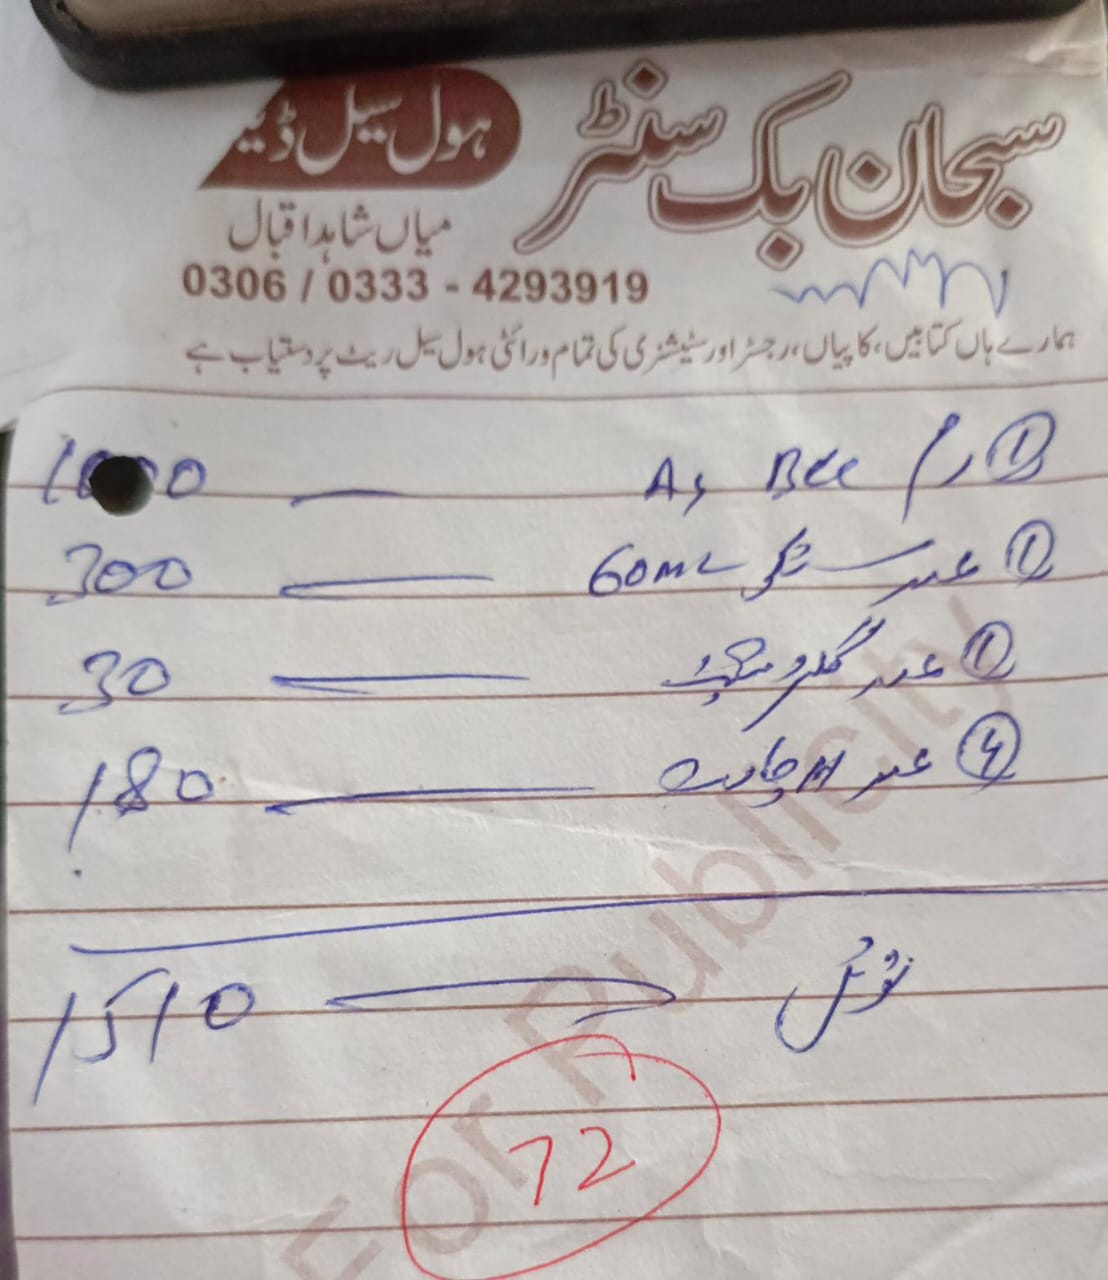 سبحان بک سنٹر
ہول سیل ڈی
میاں شاہد اقبال
0306 / 0333 - 4293919
ہمارے ہاں کتابیں، کاپیاں، رجسٹر اور سٹیشنری کی تمام ورائٹی ہول سیل ریٹ پر دستیاب ہے
① رم 1000
① عدد 60ML 300
① عدد 30
④ عدد چارٹ 180
ٹوٹل 1510
72
For Publicity